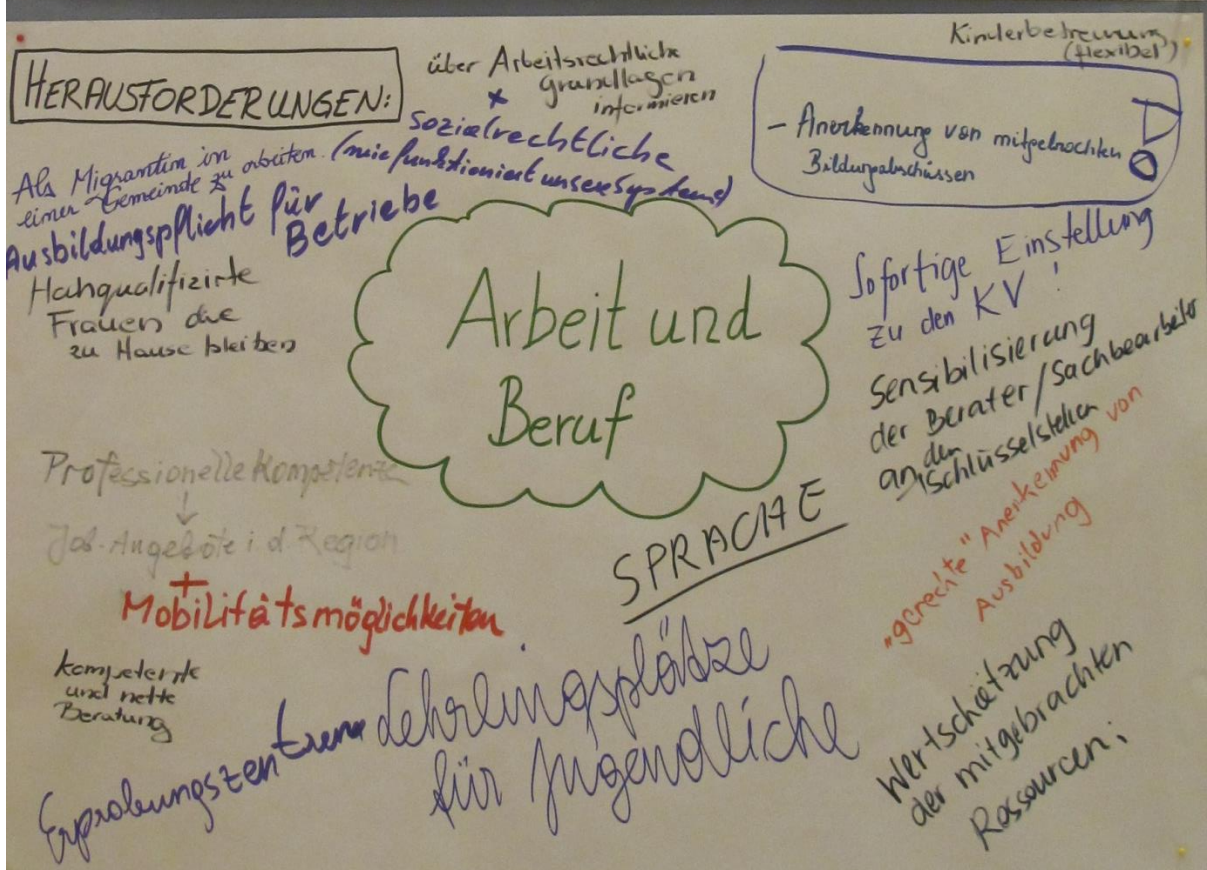 HERAUSFORDERUNGEN:
über Arbeitsrechtliche
grundlagen
informieren
+
sozialrechtliche
(wie funktioniert unsere Systeme)
Kinderbetreuung
(flexibel)
- Anerkennung von mitgebrachten
Bildungsabschüssen
!
Als Migrantin in
einer Gemeinde zu arbeiten.
Ausbildungspflicht für
Betriebe
Hahqualifizirte
Frauen die
zu Hause bleiben
Arbeit und
Beruf
Sofortige Einstellung
zu den KV !
Sensibilisierung
der Berater/Sachbearbeiter
an den Schlüsselstellen
"gerechte" Anerkennung von
Ausbildung
Professionelle Kompetenze
↓
Job-Angebote i. d. Region
+
Mobilitätsmöglichkeiten
SPRACHE
kompetente
und nette
Beratung
Erprobungszentren
Lehrlingsplätze
für Jugendliche
Wertschätzung
der mitgebrachten
Rossourcen.